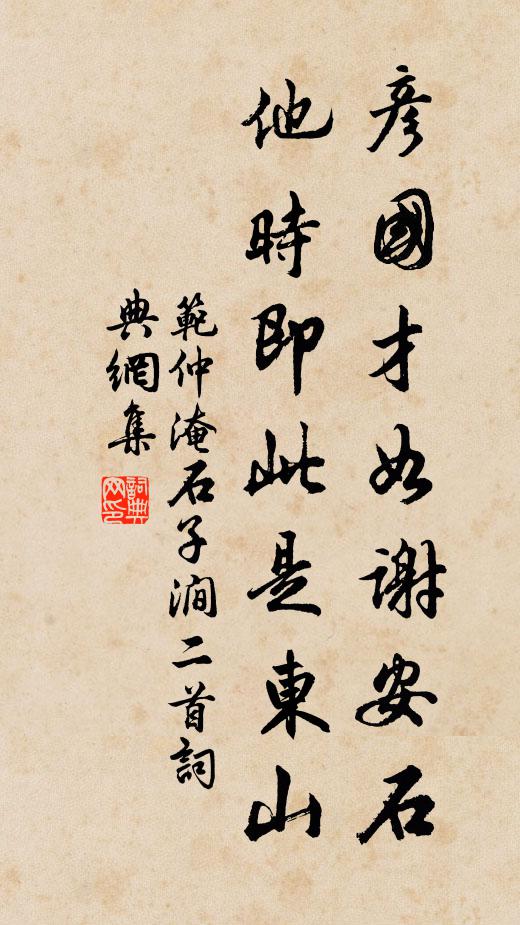 彦國才如謝安石
他時即此是東山
範仲淹石子澗二首詞
典網集
詞典网印